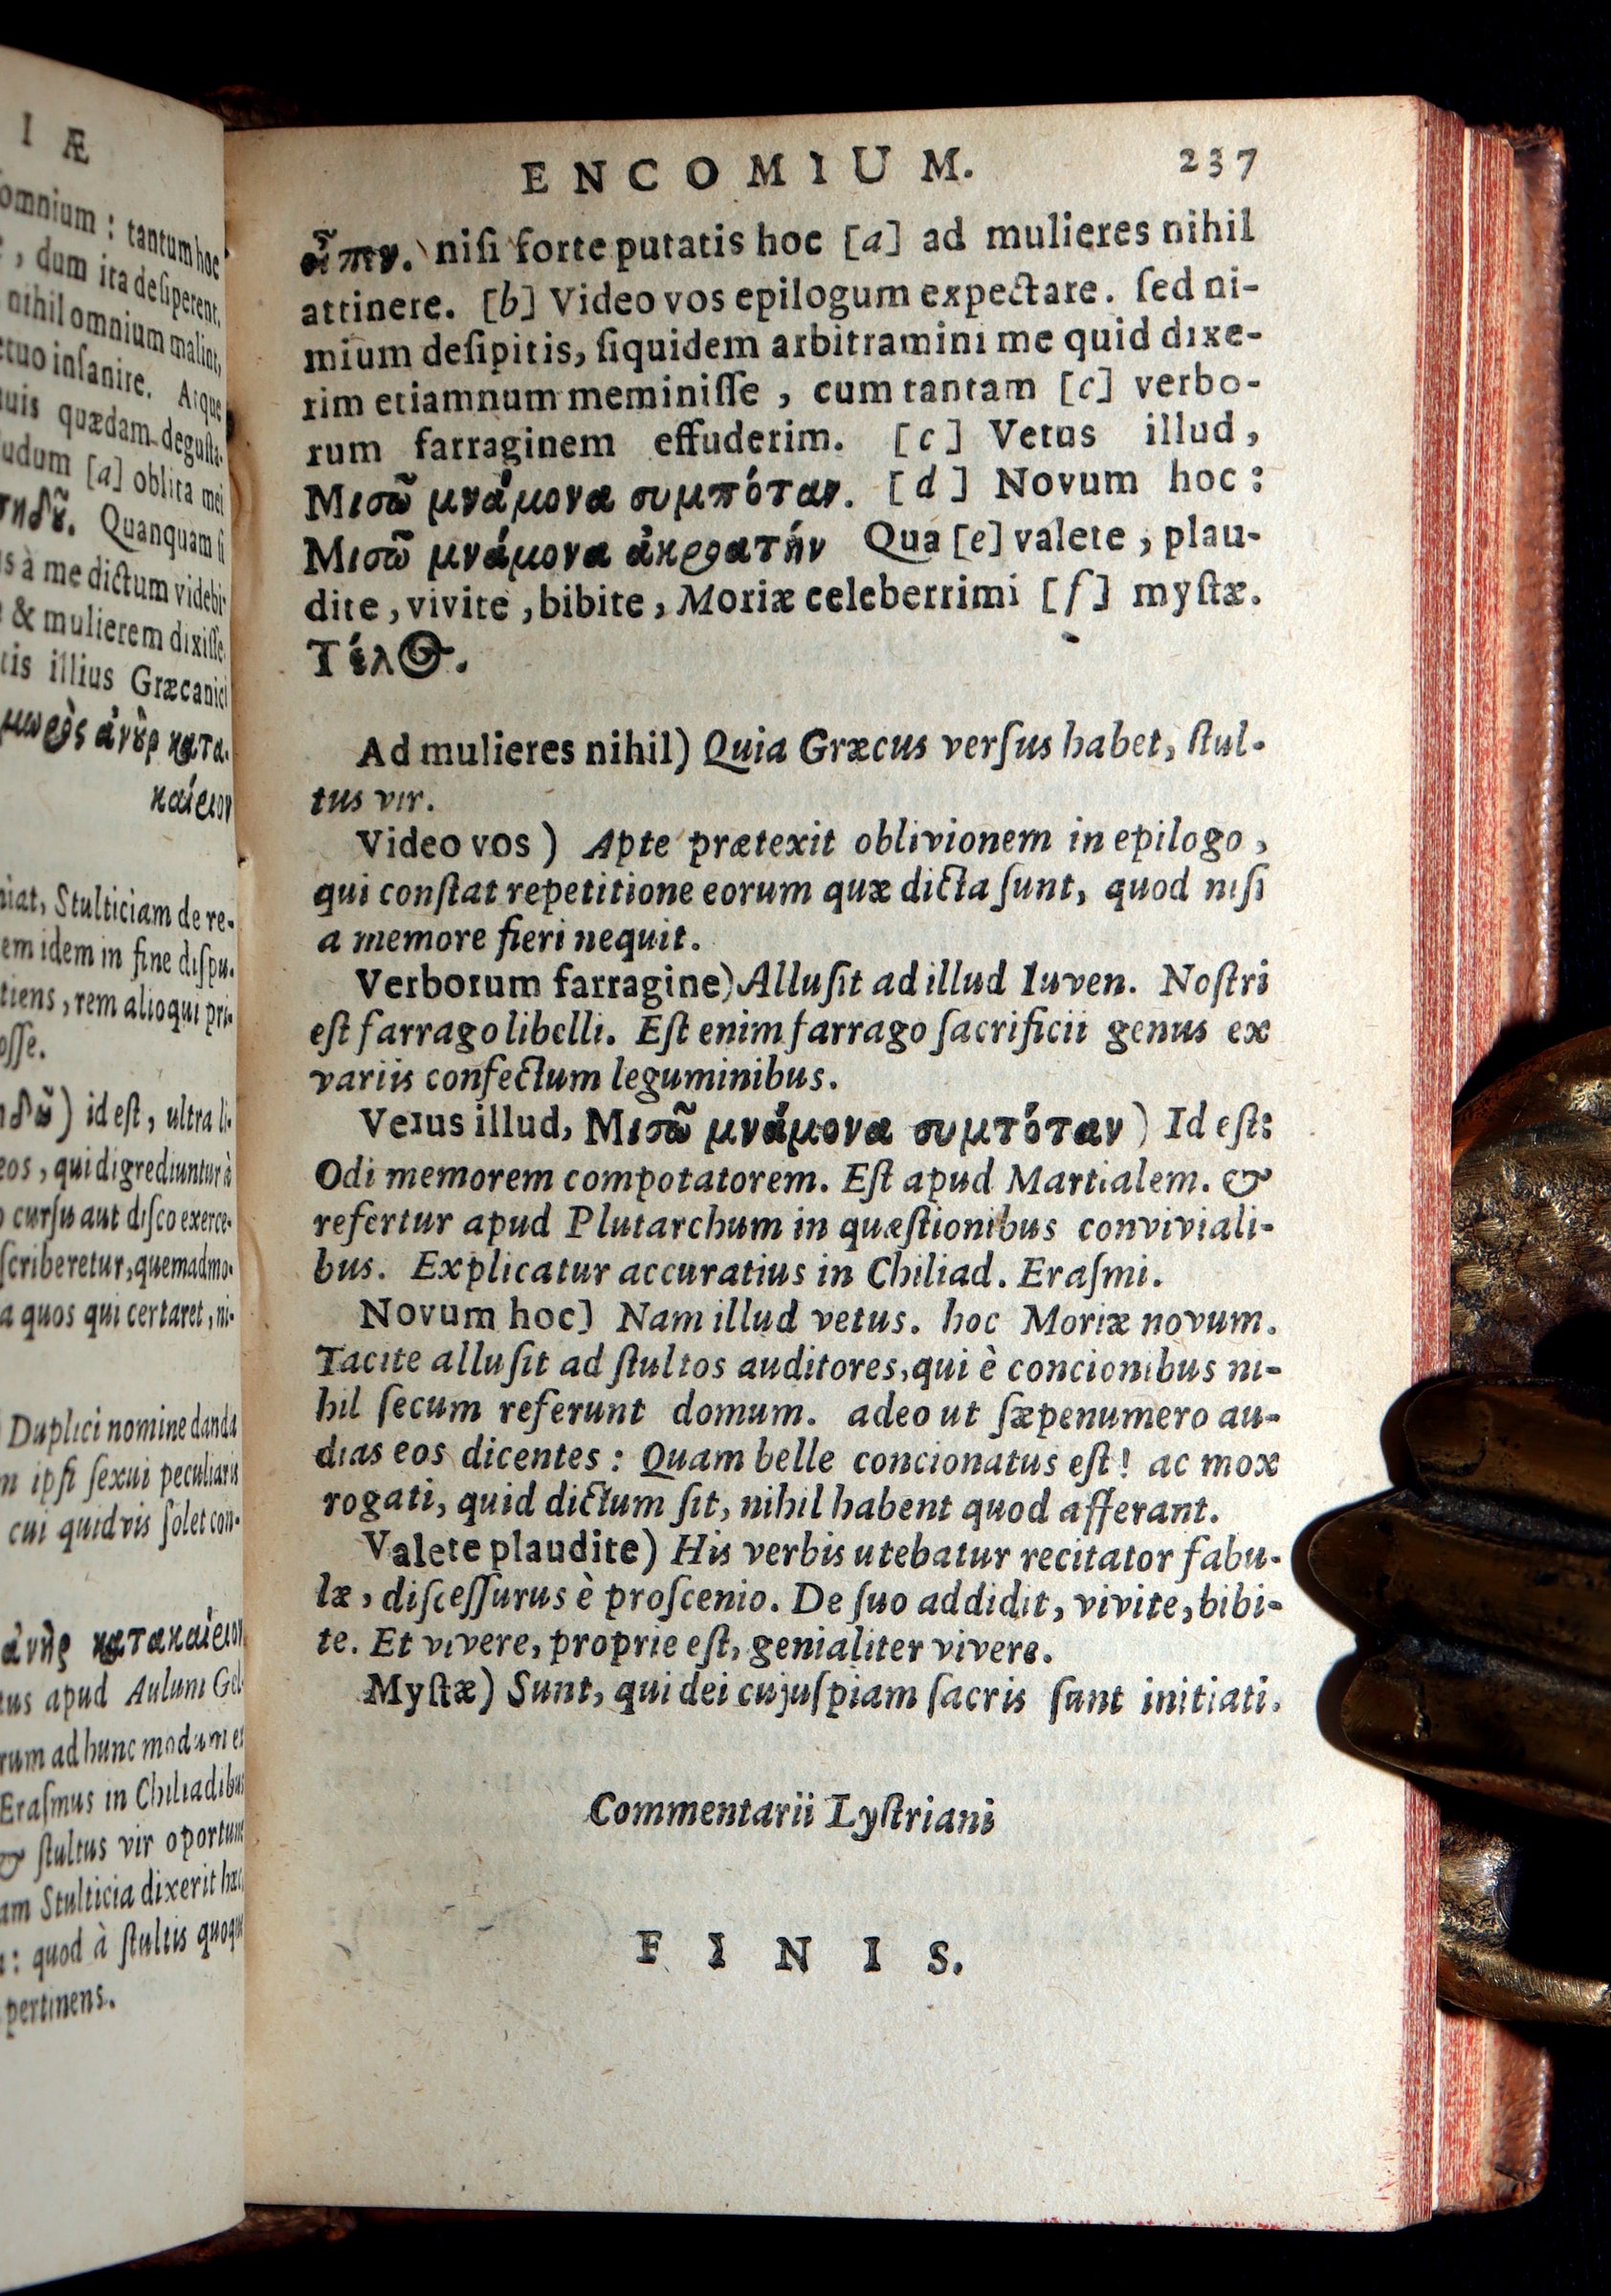 I Æ
omnium : tantum hoc
, dum ita deſiperent,
nihil omnium malint,
inſanire. Atque
quædam deguſta-
[a] oblita mei
Quanquam ſi
à me dictum videbi-
& mulierem dixiſſe.
illius Græcanici
μωρὸς ἀνὴρ κατα-
καίειον
Stulticiam de re-
idem in fine diſpu-
rem alioqui pri-
id eſt, ultra li-
qui digrediuntur à
curſu aut diſco exerce-
ſcriberetur, quemadmo-
a quos qui certaret, ni-
Duplici nomine danda
ipſi ſexui peculiaris
cui quidvis ſolet con-
ἀνὴρ κατακαίειον
apud Aulum Gel-
ad hunc modum et
Eraſmus in Chiliadibus
& ſtultus vir oportune
Stulticia dixerit hæc,
: quod à ſtultis quoque
pertinens.
ENCOMIUM. 237
niſi forte putatis hoc [a] ad mulieres nihil
attinere. [b] Video vos epilogum expectare. ſed ni-
mium deſipitis, ſiquidem arbitramini me quid dixe-
rim etiamnum meminiſſe, cum tantam [c] verbo-
rum farraginem effuderim. [c] Vetus illud,
Μισῶ μνάμονα συμπόταν. [d] Novum hoc:
Μισῶ μνάμονα ἀκροατήν Qua [e] valete, plau-
dite, vivite, bibite, Moriæ celeberrimi [f] myſtæ.
Τέλος.
Ad mulieres nihil) Quia Græcus verſus habet, ſtul-
tus vir.
Video vos) Apte prætexit oblivionem in epilogo,
qui conſtat repetitione eorum quæ dicta ſunt, quod niſi
a memore fieri nequit.
Verborum farragine) Alluſit ad illud Iuven. Noſtri
eſt farrago libelli. Eſt enim farrago ſacrificii genus ex
variis confectum leguminibus.
Vetus illud, Μισῶ μνάμονα συμτόταν) Id eſt:
Odi memorem compotatorem. Eſt apud Martialem. &
refertur apud Plutarchum in quæſtionibus conviviali-
bus. Explicatur accuratius in Chiliad. Eraſmi.
Novum hoc) Nam illud vetus. hoc Moriæ novum.
Tacite alluſit ad ſtultos auditores, qui è concionibus ni-
hil ſecum referunt domum. adeo ut ſæpenumero au-
dias eos dicentes : Quam belle concionatus eſt! ac mox
rogati, quid dictum ſit, nihil habent quod afferant.
Valete plaudite) His verbis utebatur recitator fabu-
læ, diſceſſurus è proſcenio. De ſuo addidit, vivite, bibi-
te. Et vivere, proprie eſt, genialiter vivere.
Myſtæ) Sunt, qui dei cujuſpiam ſacris ſunt initiati.
Commentarii Lyſtriani
FINIS.